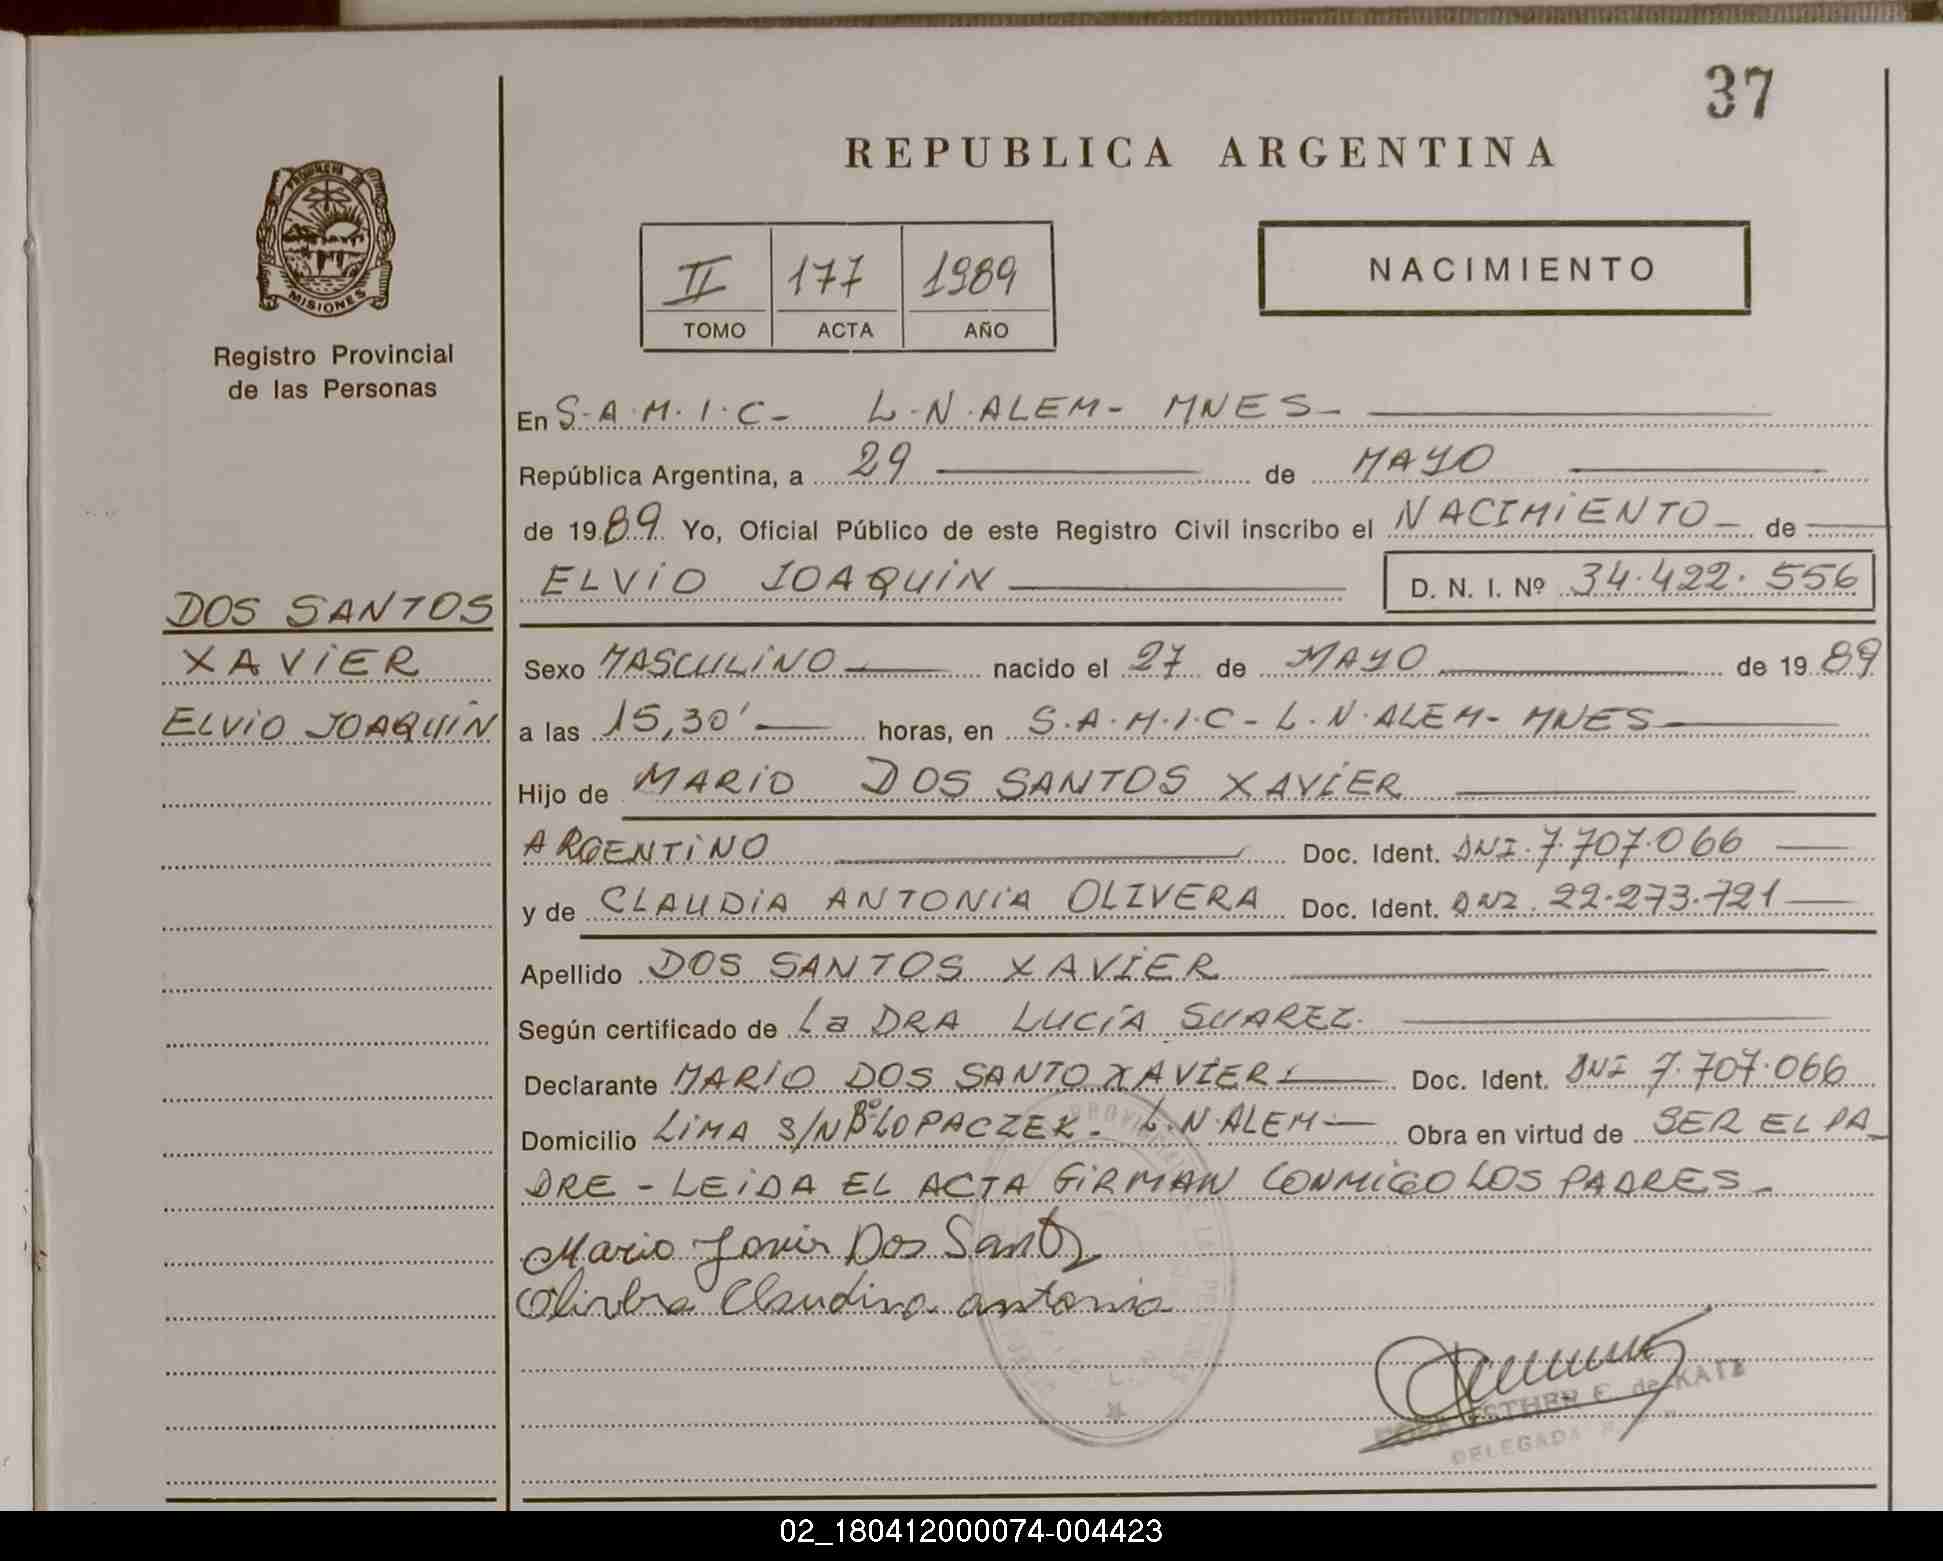 37
REPUBLICA ARGENTINA
PROVINCIA DE
MISIONES
Registro Provincial
de las Personas
II 177 1989
TOMO ACTA AÑO
NACIMIENTO
En S.A.M.I.C- L.N.ALEM- MNES-
República Argentina, a 29 de MAYO
de 1989 Yo, Oficial Público de este Registro Civil inscribo el NACIMIENTO- de
ELVIO JOAQUIN D. N. I. Nº 34.422.556
DOS SANTOS
XAVIER
ELVIO JOAQUIN
Sexo MASCULINO nacido el 27 de MAYO de 1989
a las 15,30' horas, en S.A.M.I.C-L.N.ALEM-MNES
Hijo de MARIO DOS SANTOS XAVIER
ARGENTINO Doc. Ident. DNI.7.707.066
y de CLAUDIA ANTONIA OLIVERA Doc. Ident. DNI.22.273.721
Apellido DOS SANTOS XAVIER
Según certificado de La DRA LUCIA SUAREZ.
Declarante MARIO DOS SANTO XAVIER Doc. Ident. DNI 7.707.066
Domicilio LIMA S/N Bº LOPACZEK- L.N.ALEM- Obra en virtud de SER EL PA_
DRE - LEIDA EL ACTA FIRMAN CONMIGO LOS PADRES-
Mario Dos Santos
Claudina antonia
ESTHER E. de KATZ
DELEGADA
02_180412000074-004423